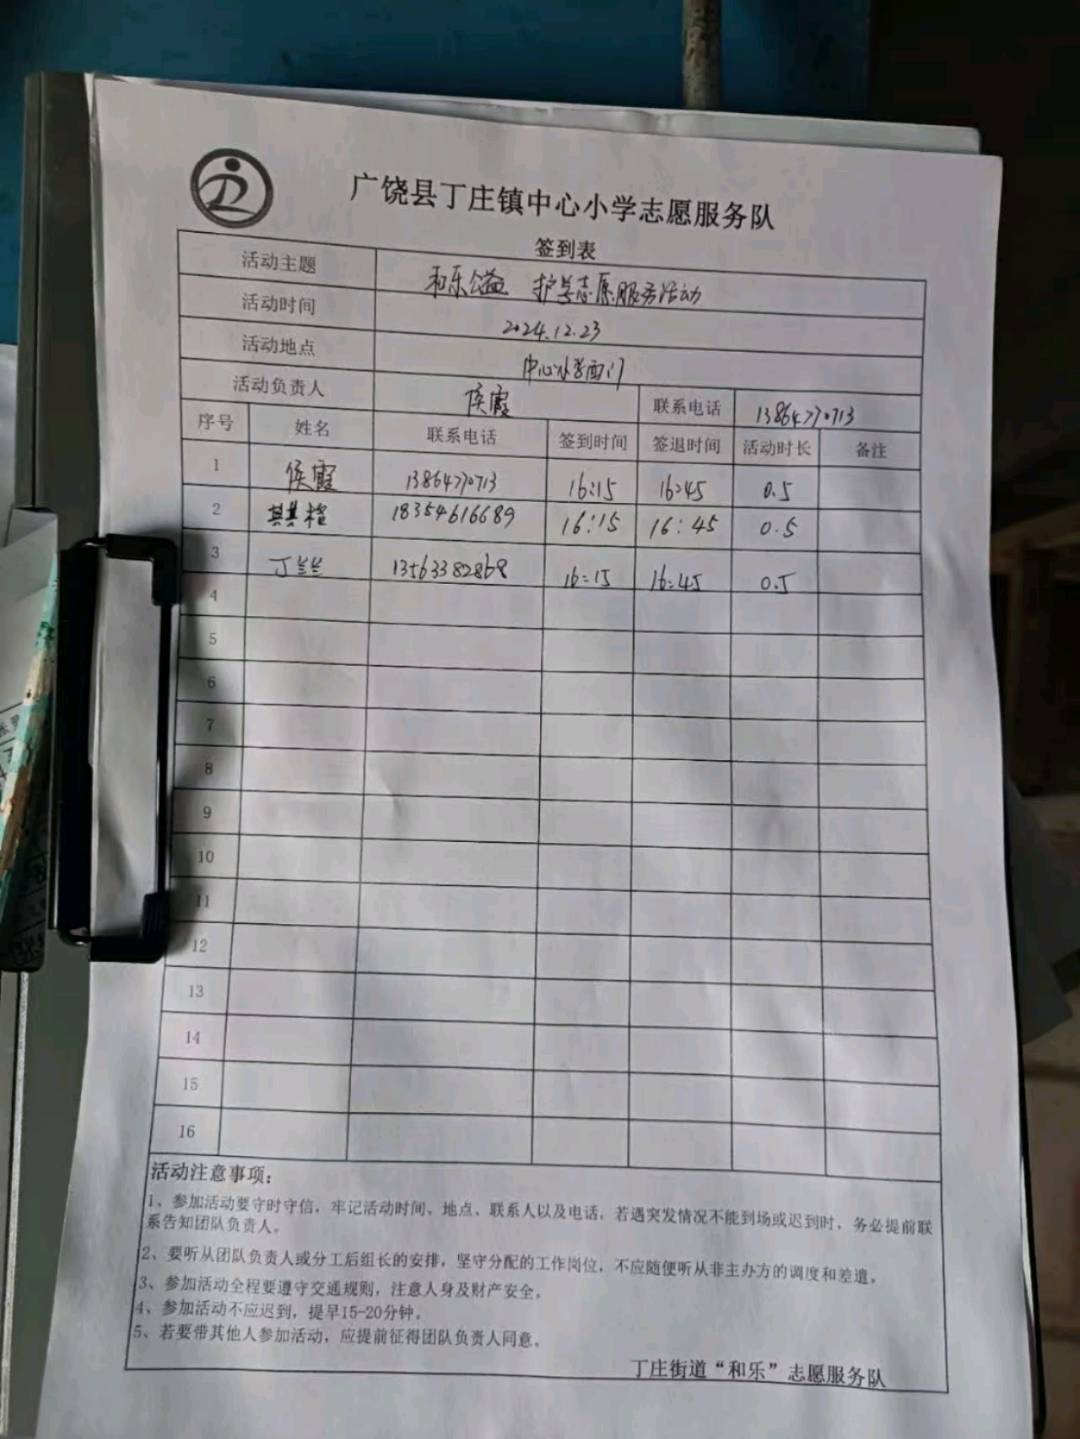 广饶县丁庄镇中心小学志愿服务队
签到表
活动主题 和乐公益 护学志愿服务活动
活动时间 2024.12.23
活动地点 中心小学西门
活动负责人 侯霞 联系电话 13864770713
序号 姓名 联系电话 签到时间 签退时间 活动时长 备注
1 侯霞 13864770713 16:15 16:45 0.5
2 18354616689 16:15 16:45 0.5
3 丁兰兰 13563382868 16:15 16:45 0.5
4
5
6
7
8
9
10
11
12
13
14
15
16
活动注意事项：
1、参加活动要守时守信，牢记活动时间、地点、联系人以及电话，若遇突发情况不能到场或迟到时，务必提前联
系告知团队负责人。
2、要听从团队负责人或分工后组长的安排，坚守分配的工作岗位，不应随便听从非主办方的调度和差遣。
3、参加活动全程要遵守交通规则，注意人身及财产安全。
4、参加活动不应迟到，提早15-20分钟。
5、若要带其他人参加活动，应提前征得团队负责人同意。
丁庄街道“和乐”志愿服务队